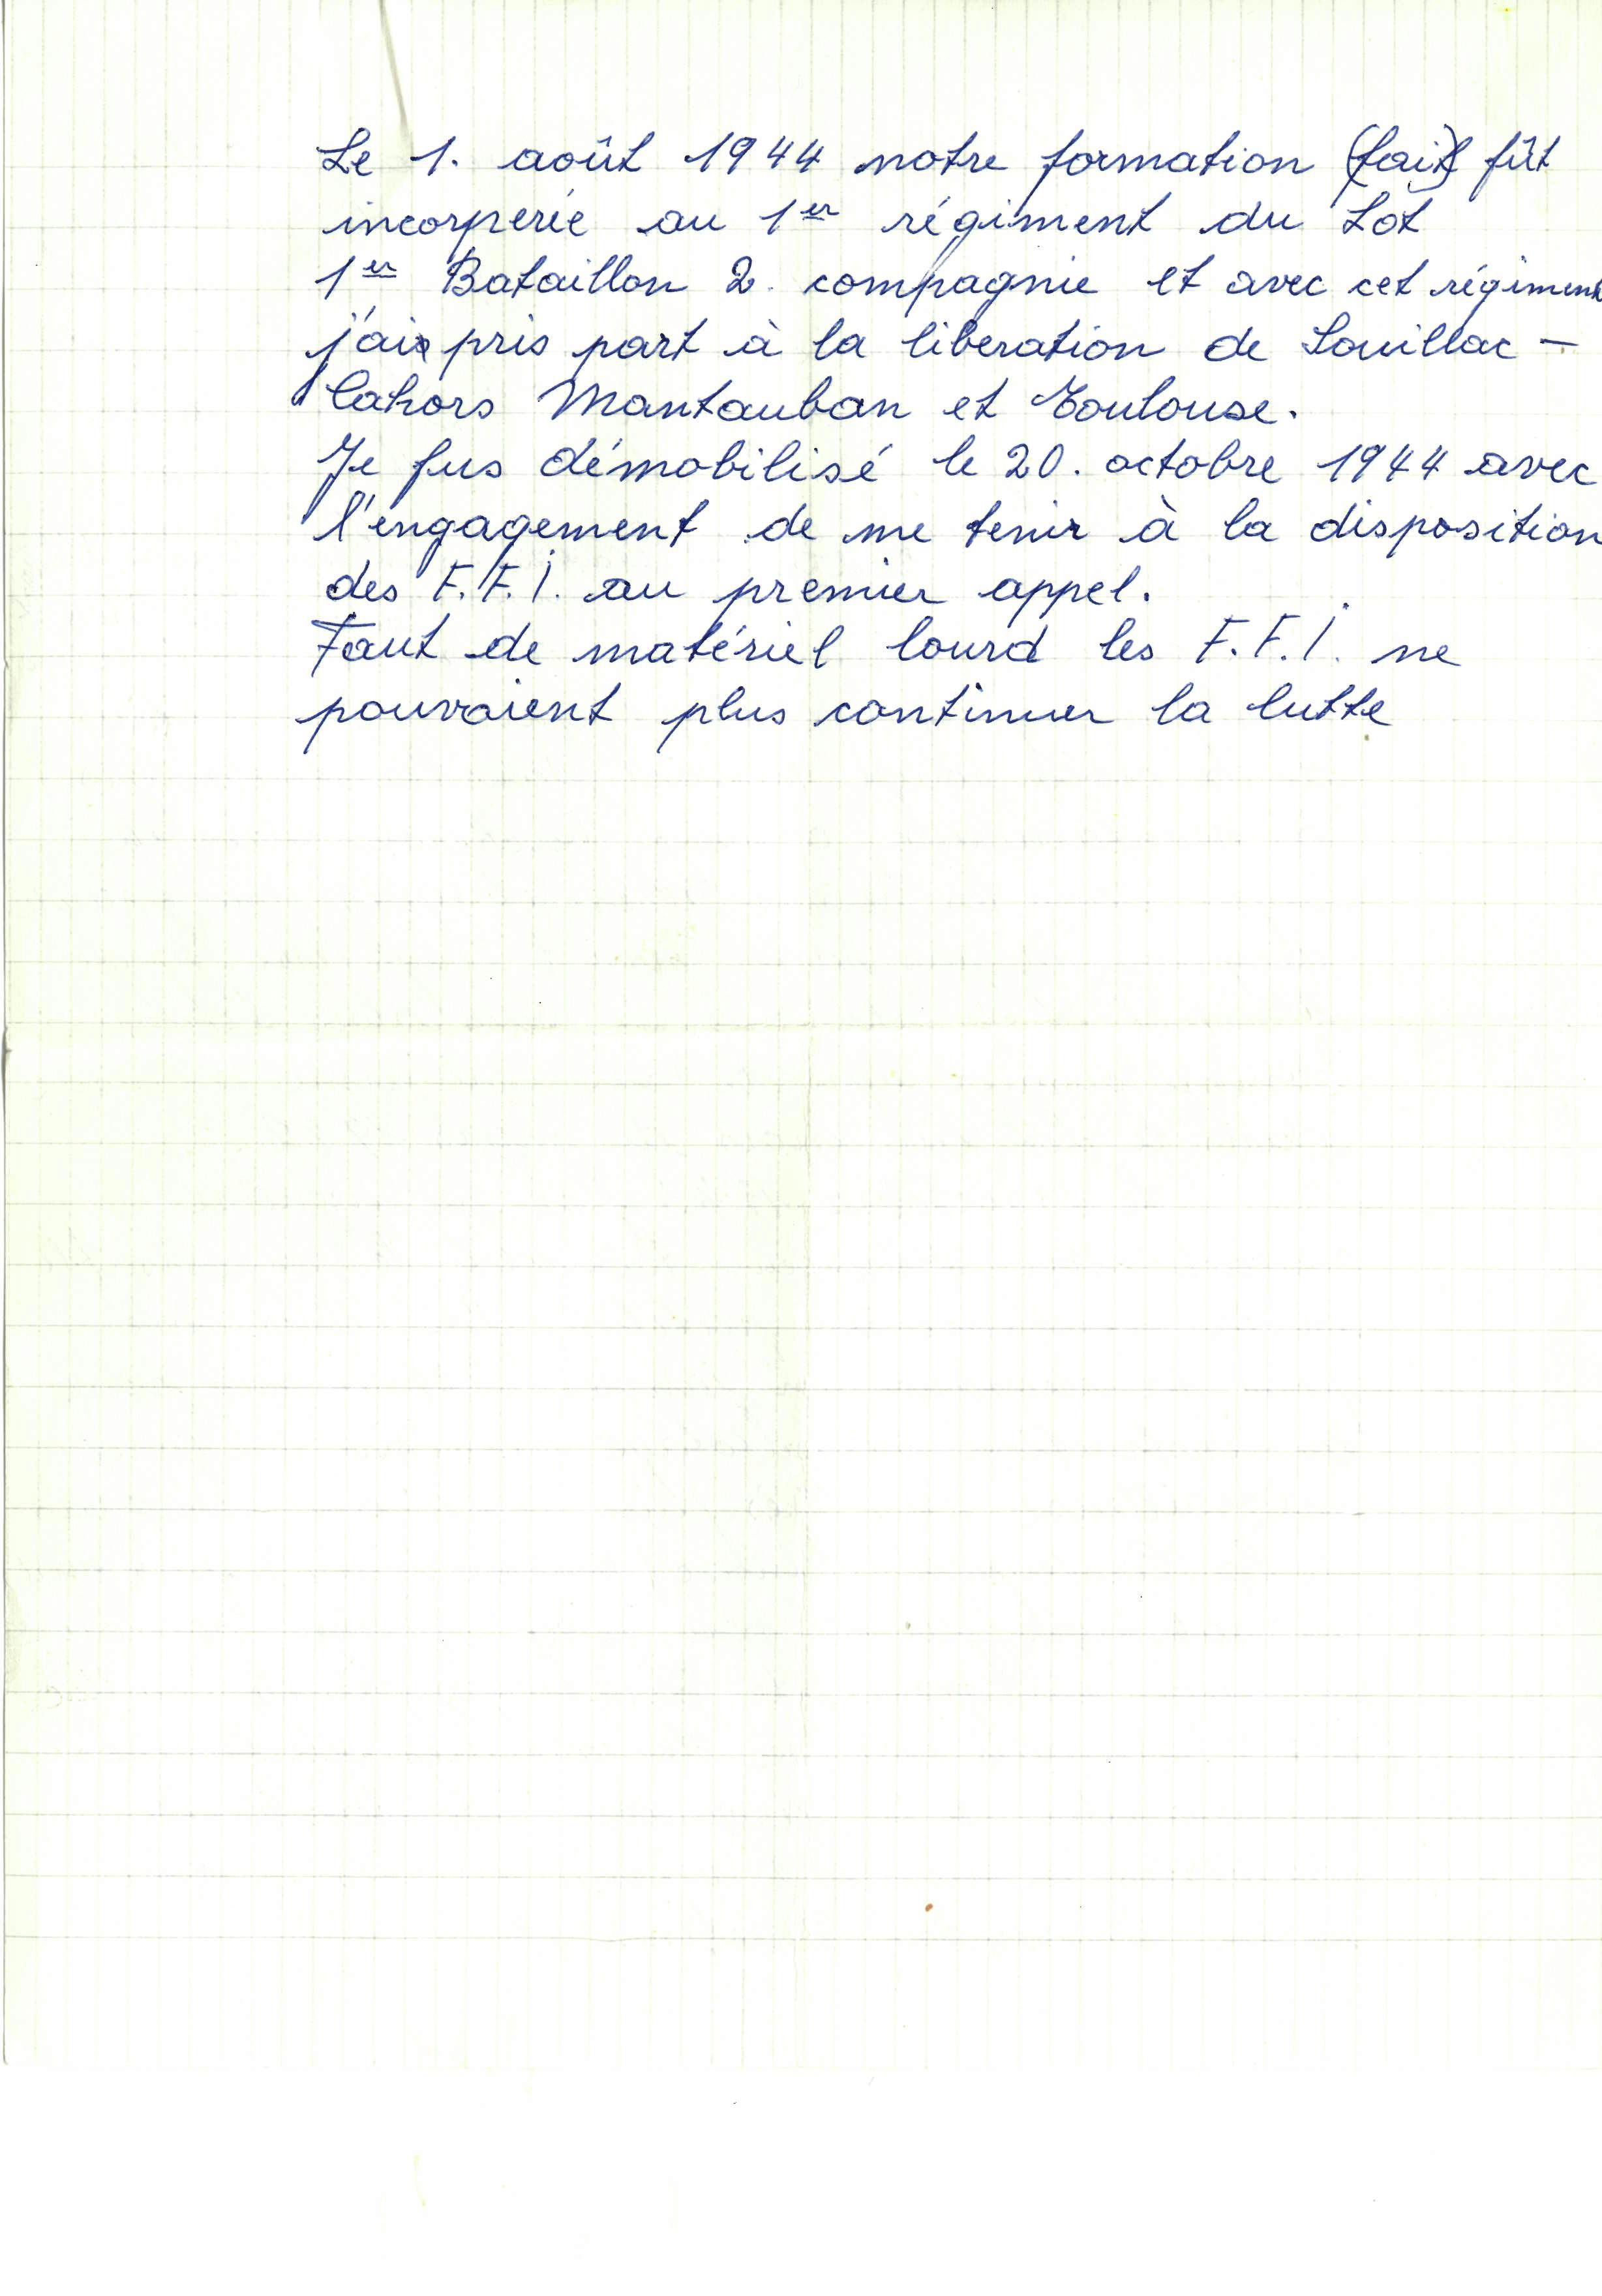 Le 1. août 1944 notre formation (fait) fût
incorperée au 1er régiment du Lot
1er Bataillon 2. compagnie et avec cet régiment
j'ais pris part à la liberation de Souillac -
Cahors Mantauban et Toulouse.
Je fus démobilisé le 20. octobre 1944 avec
l'engagement de me tenir à la disposition
des F.F.I. au premier appel.
Faut de matériel lourd les F.F.I. ne
pouvaient plus continuer la lutte